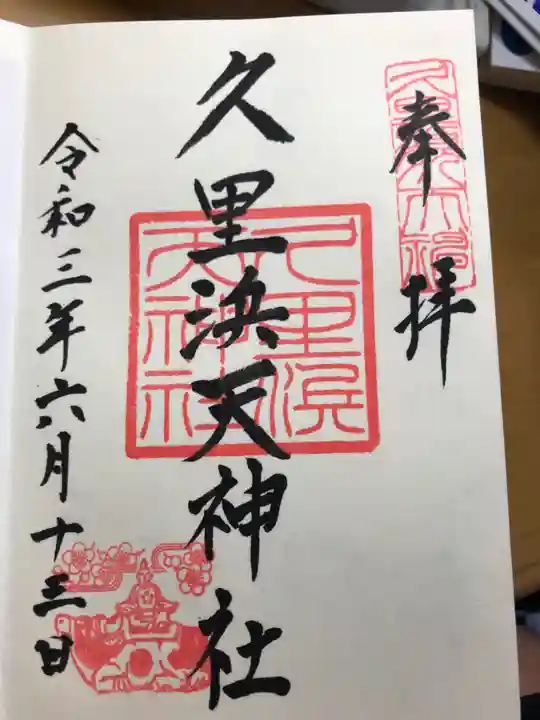 奉拝
久里浜天神社
令和三年六月十三日
久里浜天神社